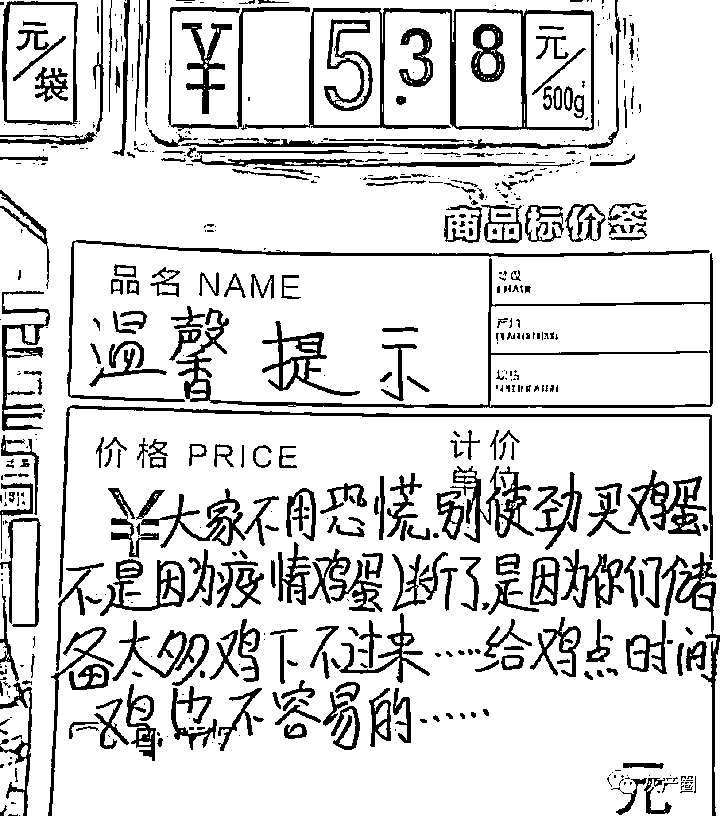 元/袋
¥ 5.38 元/500g
商品标价签
品名 NAME
温馨提示
价格 PRICE
计价
单位
大家不用恐慌,别使劲买鸡蛋,
不是因为疫情鸡蛋断了,是因为你们储
备太多,鸡下不过来……给鸡点时间
鸡也不容易的……
元
灰产圈